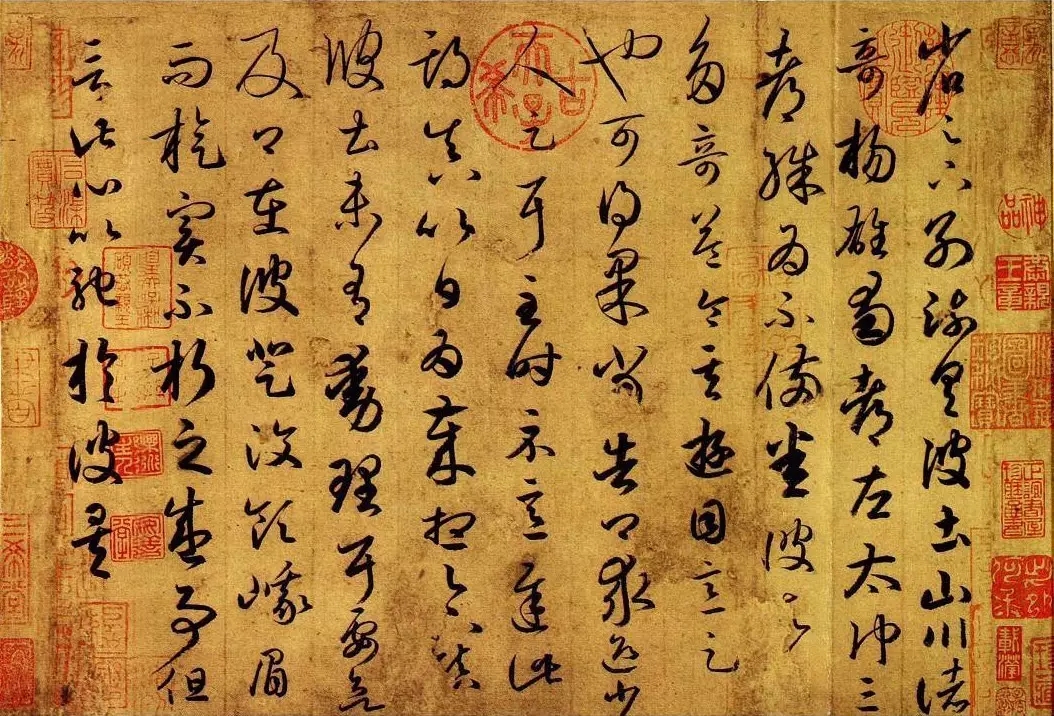 省足下別疏具彼土山川諸
奇楊雄蜀都左太沖三
都殊為不備悉彼故
多奇益令其遊目意足
也可得果當告卿求迎少
人足耳至時示意遲此
期真以日為歲想足下鎮
彼土未有動理耳要欲
及卿在彼登汶領峨眉
而旋實不朽之盛事但
言此心以馳於彼矣
古稀天子
神品